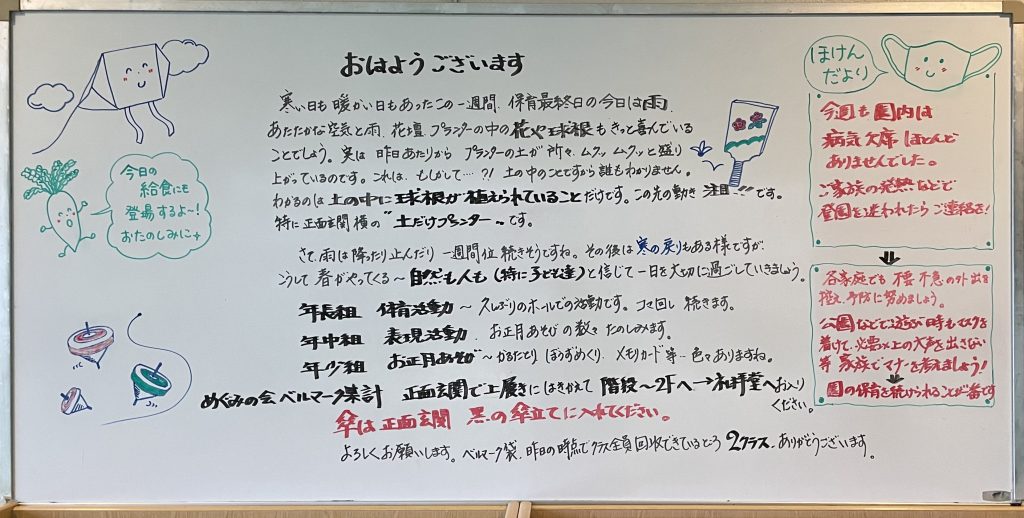 おはようございます
寒い日も暖かい日もあったこの一週間、保育最終日の今日は雨、
あたたかな空気と雨、花壇、プランターの中の花や球根もきっと喜んでいる
ことでしょう。実は昨日あたりから プランターの土が所々、ムクッ ムクッと盛り
上がっているのです。これは、もしかして…?! 土の中のことですから誰もわかりません。
わかるのは土の中に球根が植えられていることだけです。この先の動き 注目…です。
特に正面玄関横の"土だけプランター"です。
さて、雨は降ったり止んだり 一週間位続きそうですね。その後は寒の戻りもある様ですが
こうして春がやってくる〜自然も人も(特に子ども達)と信じて一日を大切に過ごしていきましょう。
年長組 体育活動〜久しぶりのホールでの活動です。コマ回し 続きます。
年中組 表現活動、お正月あそびの数々 たのしみます。
年少組 お正月あそび〜かるたとり ぼうずめくり、メモリカード等…色々ありますね。
めぐみの会ベルマーク集計 正面玄関で上履きにはきかえて 階段〜2Fへ→礼拝堂へお入り
ください。
傘は正面玄関 黒の傘立てに入れてください。
よろしくお願いします。ベルマーク袋、昨日の時点でクラス全員回収できているところ 2クラス、ありがとうございます。
今日の
給食にも
登場するよ〜!
おたのしみに
ほけん
だより
今週も園内は
病気欠席 ほとんど
ありませんでした。
ご家族の発熱などで
登園を迷われたらご連絡を!
各家庭でも 不急の外出を
控え、予防に努めましょう。
公園などで遊ぶ時もマスクを
着けて、必要以上の大声を出さない
等 家族でマナーを考えましょう!
園の保育を続けられることが一番です